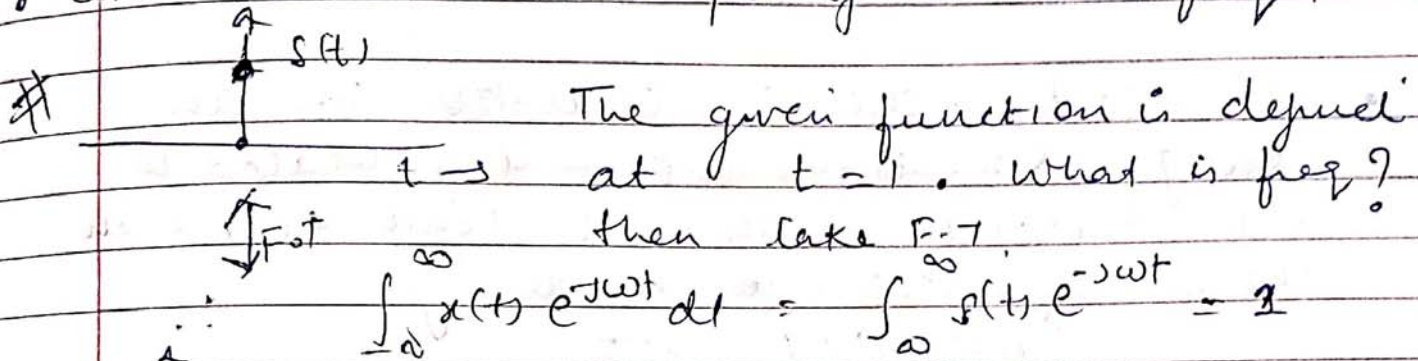 # δ(t)
The given function is defined
t → at t = 1. What is freq?
↕ F.T then take F.T.
∴ ∫_{-∞}^{∞} x(t) e^{-jωt} dt = ∫_{∞}^{∞} δ(t) e^{-jωt} = 1